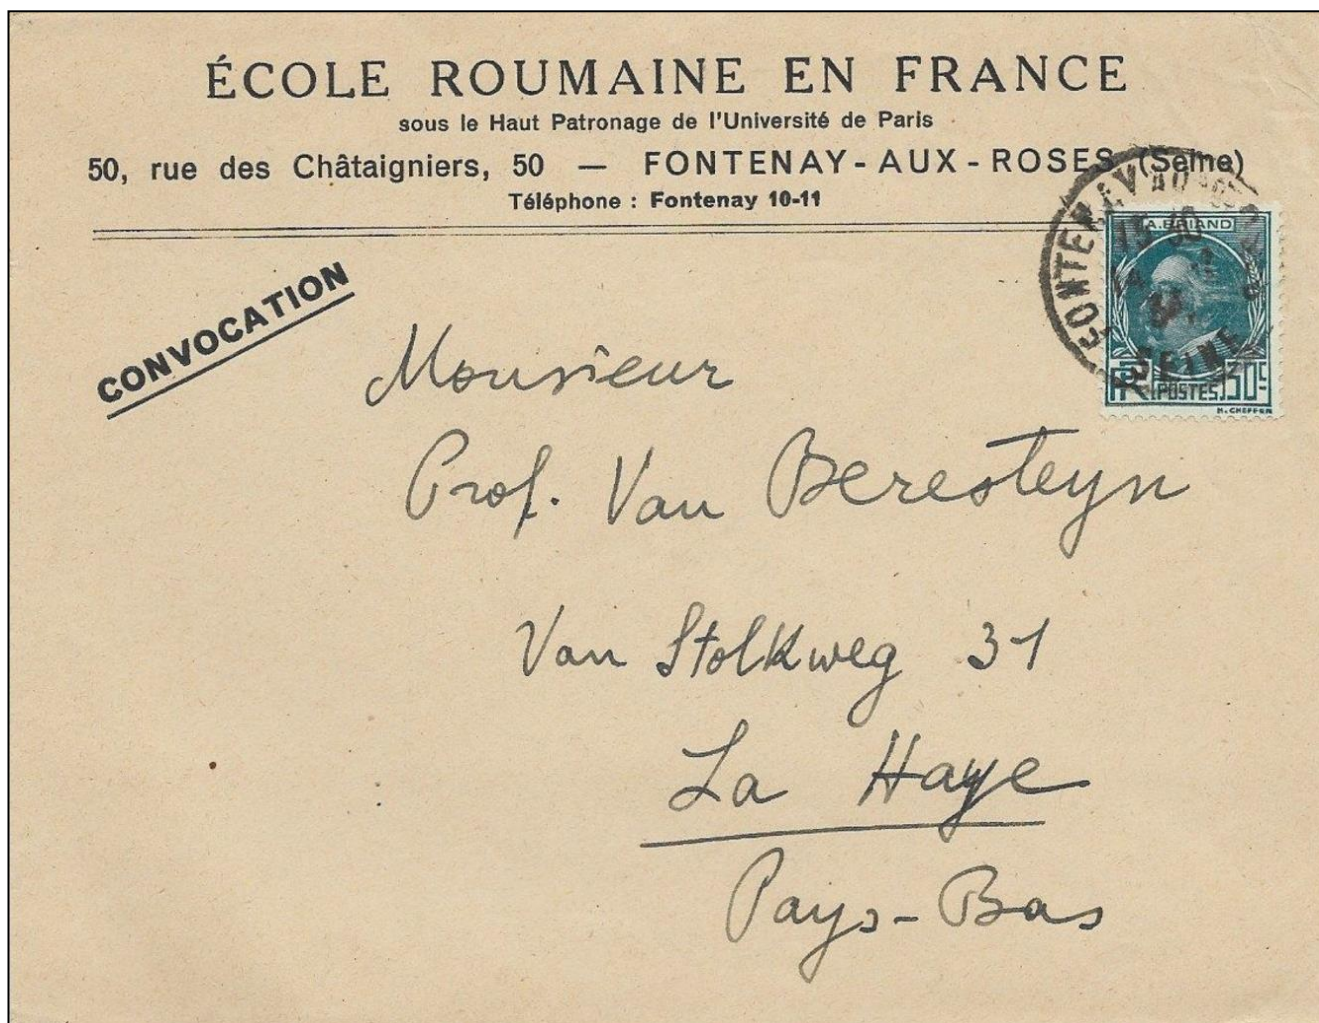 ÉCOLE ROUMAINE EN FRANCE
sous le Haut Patronage de l'Université de Paris
50, rue des Châtaigniers, 50 — FONTENAY-AUX-ROSES (Seine)
Téléphone : Fontenay 10-11
CONVOCATION
A.BRIAND
RF POSTES 30c
H. CHEFFER
FONTENAY AUX ROSES
SEINE
Monsieur
Prof. Van Beresteyn
Van Stolkweg 31
La Haye
Pays-Bas